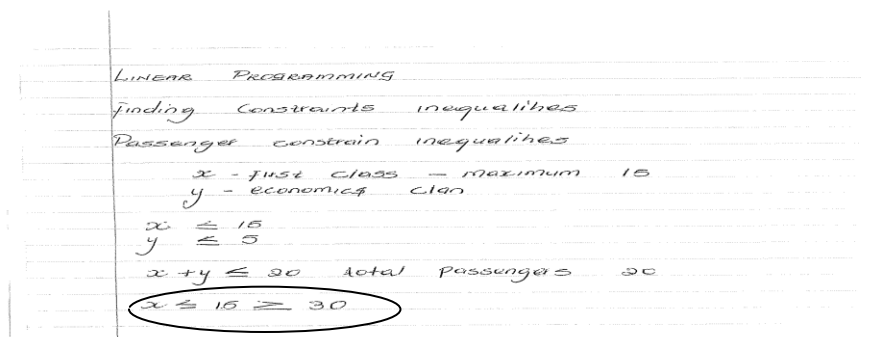 LINEAR PROGRAMMING
Finding Constraints inequalities
Passenger constrain inequalities
x - First class - maximum 15
y - economics clan
x ≤ 15
y ≤ 5
x + y ≤ 20 total passengers 20
x ≤ 15 ≥ 30